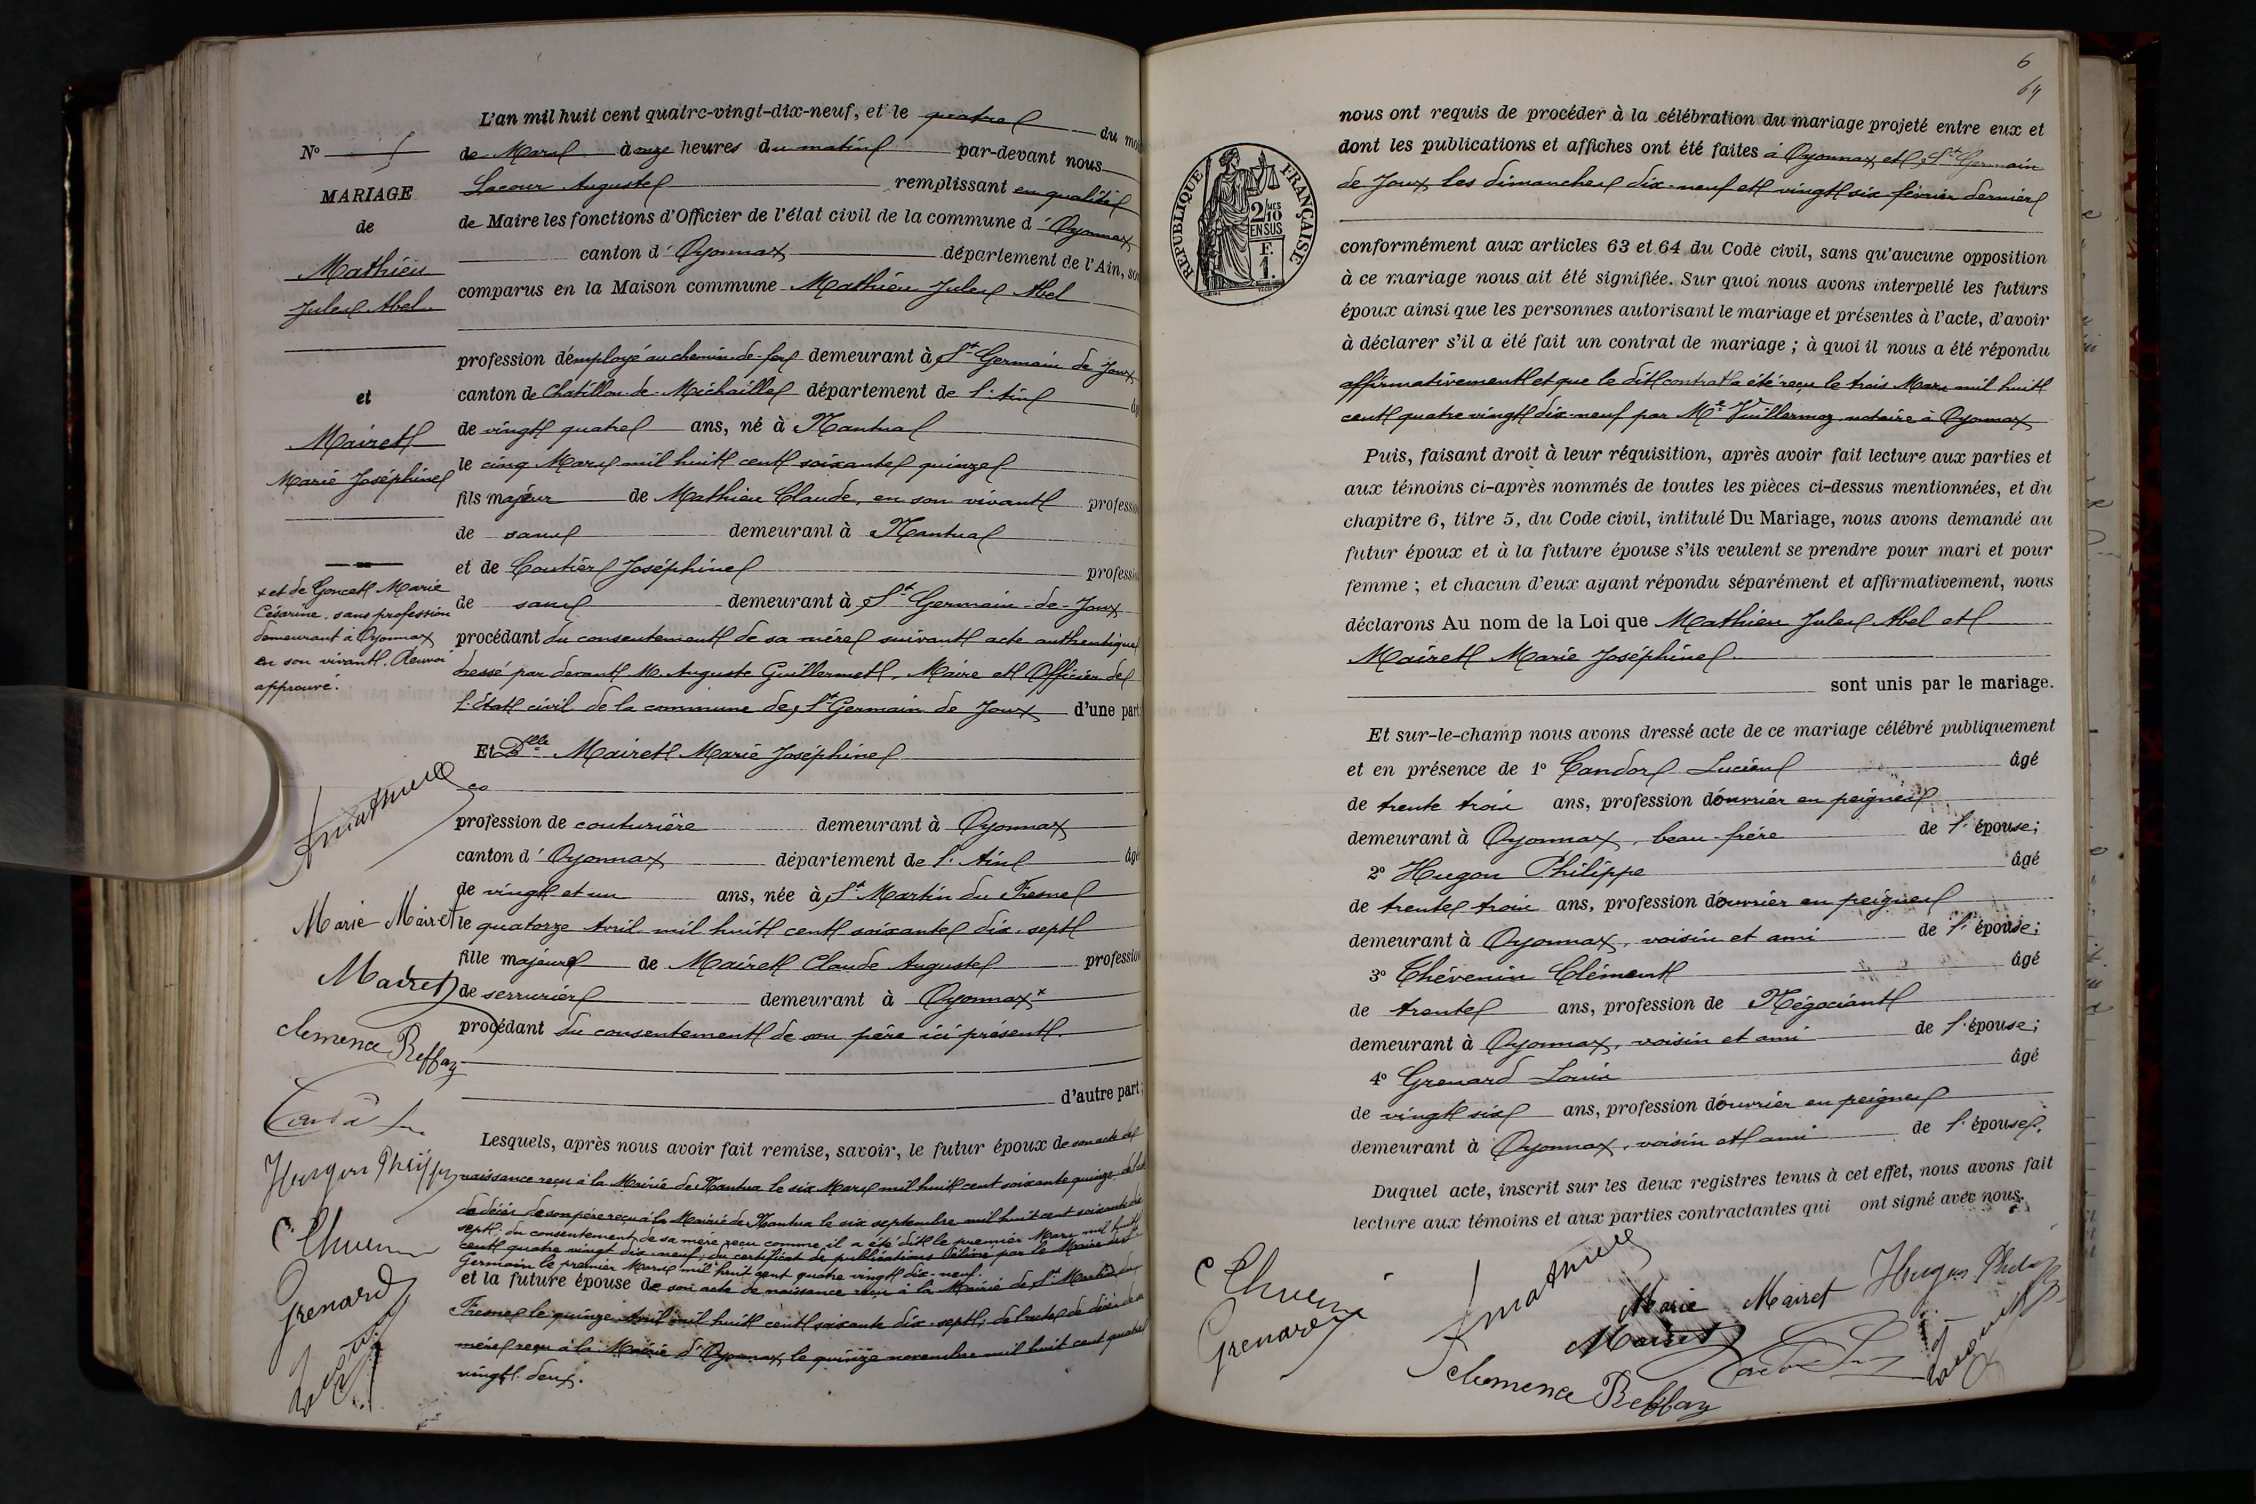 L'an mil huit cent quatre-vingt-dix-neuf, et le quatre du moi
N° 5
de Mars à onze heures du matin par-devant nous
MARIAGE
Lacour Auguste remplissant en qualité
de
de Maire les fonctions d'Officier de l'état civil de la commune d'Oyonnax
Mathieu
canton d'Oyonnax département de l'Ain, so
Jules Abel
comparus en la Maison commune Mathieu Jules Abel
profession d'employé au chemin de fer demeurant à St Germain de Joux
et
canton de Chatillon-de-Michaille département de l'Ain âg
Mairet
de vingt quatre ans, né à Nantua
Marie Joséphine
le cinq Mars mil huit cent soixante quinze
fils majeur de Mathieu Claude, en son vivant professio
de sans demeurant à Nantua
et de Coutier Joséphine professi
+ et de Goncet Marie
Césarine, sans profession
demeurant à Oyonnax
en son vivant. Renvoi
approuvé.
de sans demeurant à St Germain-de-Joux
procédant du consentement de sa mère suivant acte authentique
dressé par devant M. Auguste Guillermet, Maire et Officier de
l'état civil de la commune de St Germain de Joux d'une part
Et Delle Mairet Marie Joséphine
profession de couturière demeurant à Oyonnax
canton d'Oyonnax département de l'Ain âgé
de vingt et un ans, née à St Martin du Fresne
le quatorze Avril mil huit cent soixante dix-sept
fille majeure de Mairet Claude Auguste profession
de serrurier demeurant à Oyonnax +
procédant du consentement de son père ici présent.
d'autre part;
Lesquels, après nous avoir fait remise, savoir, le futur époux de son acte de
naissance reçu à la Mairie de Nantua le six Mars mil huit cent soixante quinze
de décès de son père reçu à la Mairie de Nantua le six septembre mil huit cent soixante dix
sept; du consentement de sa mère reçu comme il a été dit le premier Mars mil huit
cent quatre vingt dix-neuf; du certificat de publications délivré par le Maire de St
Germain le premier Mars mil huit cent quatre vingt dix-neuf.
et la future épouse de son acte de naissance reçu à la Mairie de St Martin du
Fresne le quinze Avril mil huit cent soixante dix-sept; de l'acte de décès de sa
mère reçu à la Mairie d'Oyonnax le quinze novembre mil huit cent quatre
vingt deux.
Marie Mairet
Mairet
Clemence Reffay
Hugon Philippe
C. Thevenin
Grenard
6
64
nous ont requis de procéder à la célébration du mariage projeté entre eux et
dont les publications et affiches ont été faites à Oyonnax et St Germain
de Joux les dimanches dix-neuf et vingt six février dernier
RÉPUBLIQUE FRANÇAISE
2/10 MES
EN SUS
F.
1.
conformément aux articles 63 et 64 du Code civil, sans qu'aucune opposition
à ce mariage nous ait été signifiée. Sur quoi nous avons interpellé les futurs
époux ainsi que les personnes autorisant le mariage et présentes à l'acte, d'avoir
à déclarer s'il a été fait un contrat de mariage; à quoi il nous a été répondu
affirmativement et que le dit contrat a été reçu le trois Mars mil huit
cent quatre vingt dix-neuf par Me Vuillermoz notaire à Oyonnax
Puis, faisant droit à leur réquisition, après avoir fait lecture aux parties et
aux témoins ci-après nommés de toutes les pièces ci-dessus mentionnées, et du
chapitre 6, titre 5, du Code civil, intitulé Du Mariage, nous avons demandé au
futur époux et à la future épouse s'ils veulent se prendre pour mari et pour
femme; et chacun d'eux ayant répondu séparément et affirmativement, nous
déclarons Au nom de la Loi que Mathieu Jules Abel et
Mairet Marie Joséphine
sont unis par le mariage.
Et sur-le-champ nous avons dressé acte de ce mariage célébré publiquement
et en présence de 1° Candor Lucien âgé
de trente trois ans, profession d'ouvrier en peignes
demeurant à Oyonnax, beau-frère de l'épouse;
2° Hugon Philippe âgé
de trente trois ans, profession d'ouvrier en peignes
demeurant à Oyonnax, voisin et ami de l'épouse;
3° Thévenin Clément âgé
de trente ans, profession de Négociant
demeurant à Oyonnax, voisin et ami de l'épouse;
4° Grenard Louis âgé
de vingt six ans, profession d'ouvrier en peignes
demeurant à Oyonnax, voisin et ami de l'épouse.
Duquel acte, inscrit sur les deux registres tenus à cet effet, nous avons fait
lecture aux témoins et aux parties contractantes qui ont signé avec nous.
Marie Mairet
Mairet
Grenard
Clemence Reffay